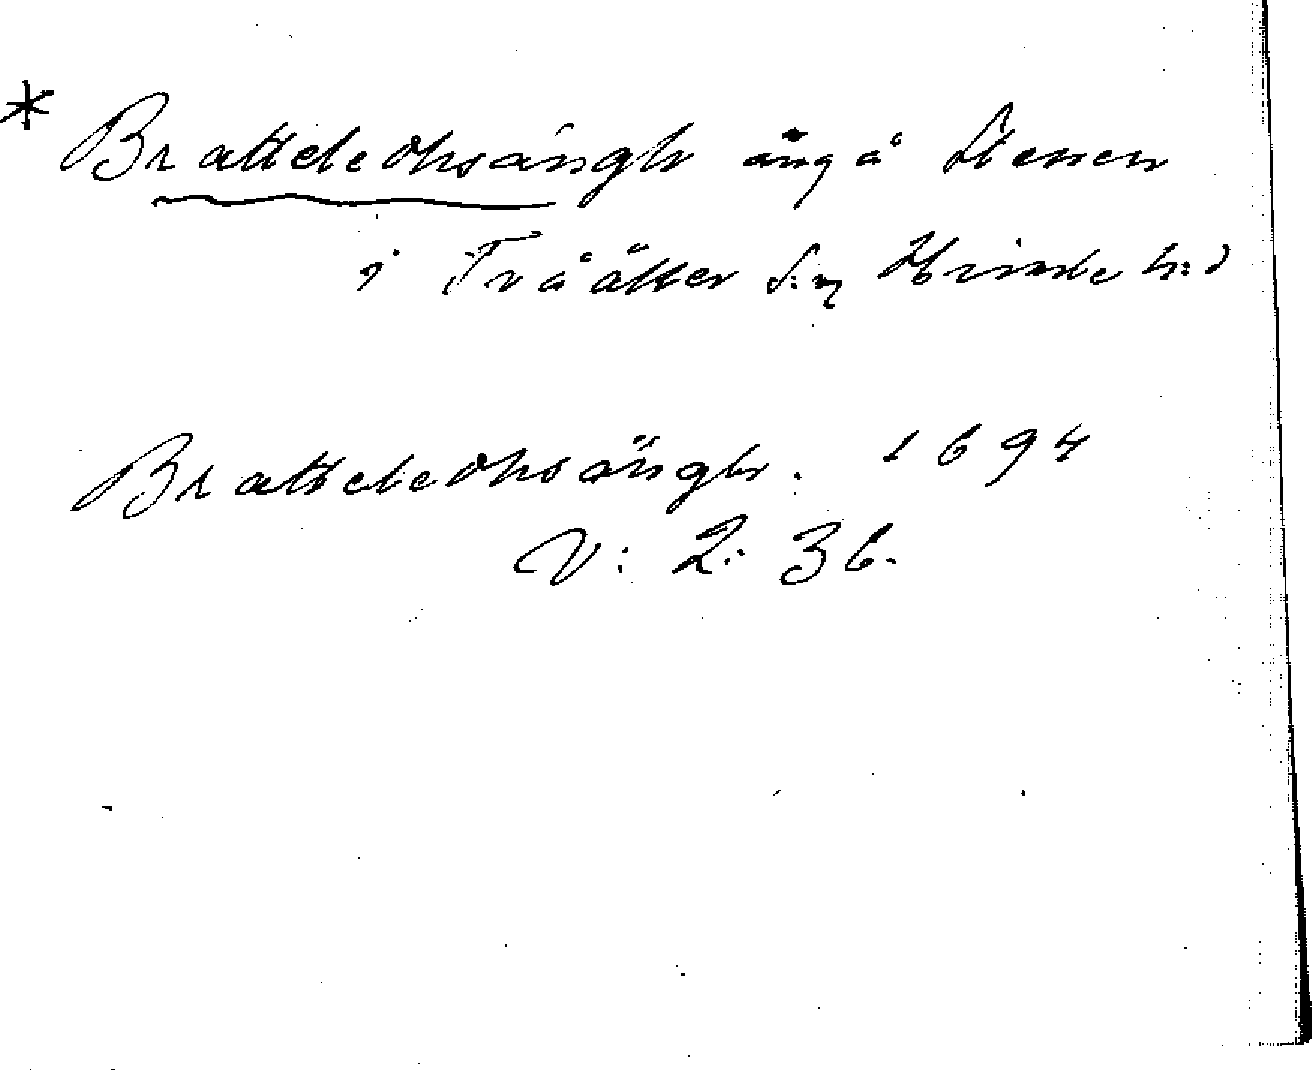 * Bratteledhsängh äng å Stenen
i Tvååker s:n Himle h:d
Bratteledhsängh. 1694
V: 2: 36.